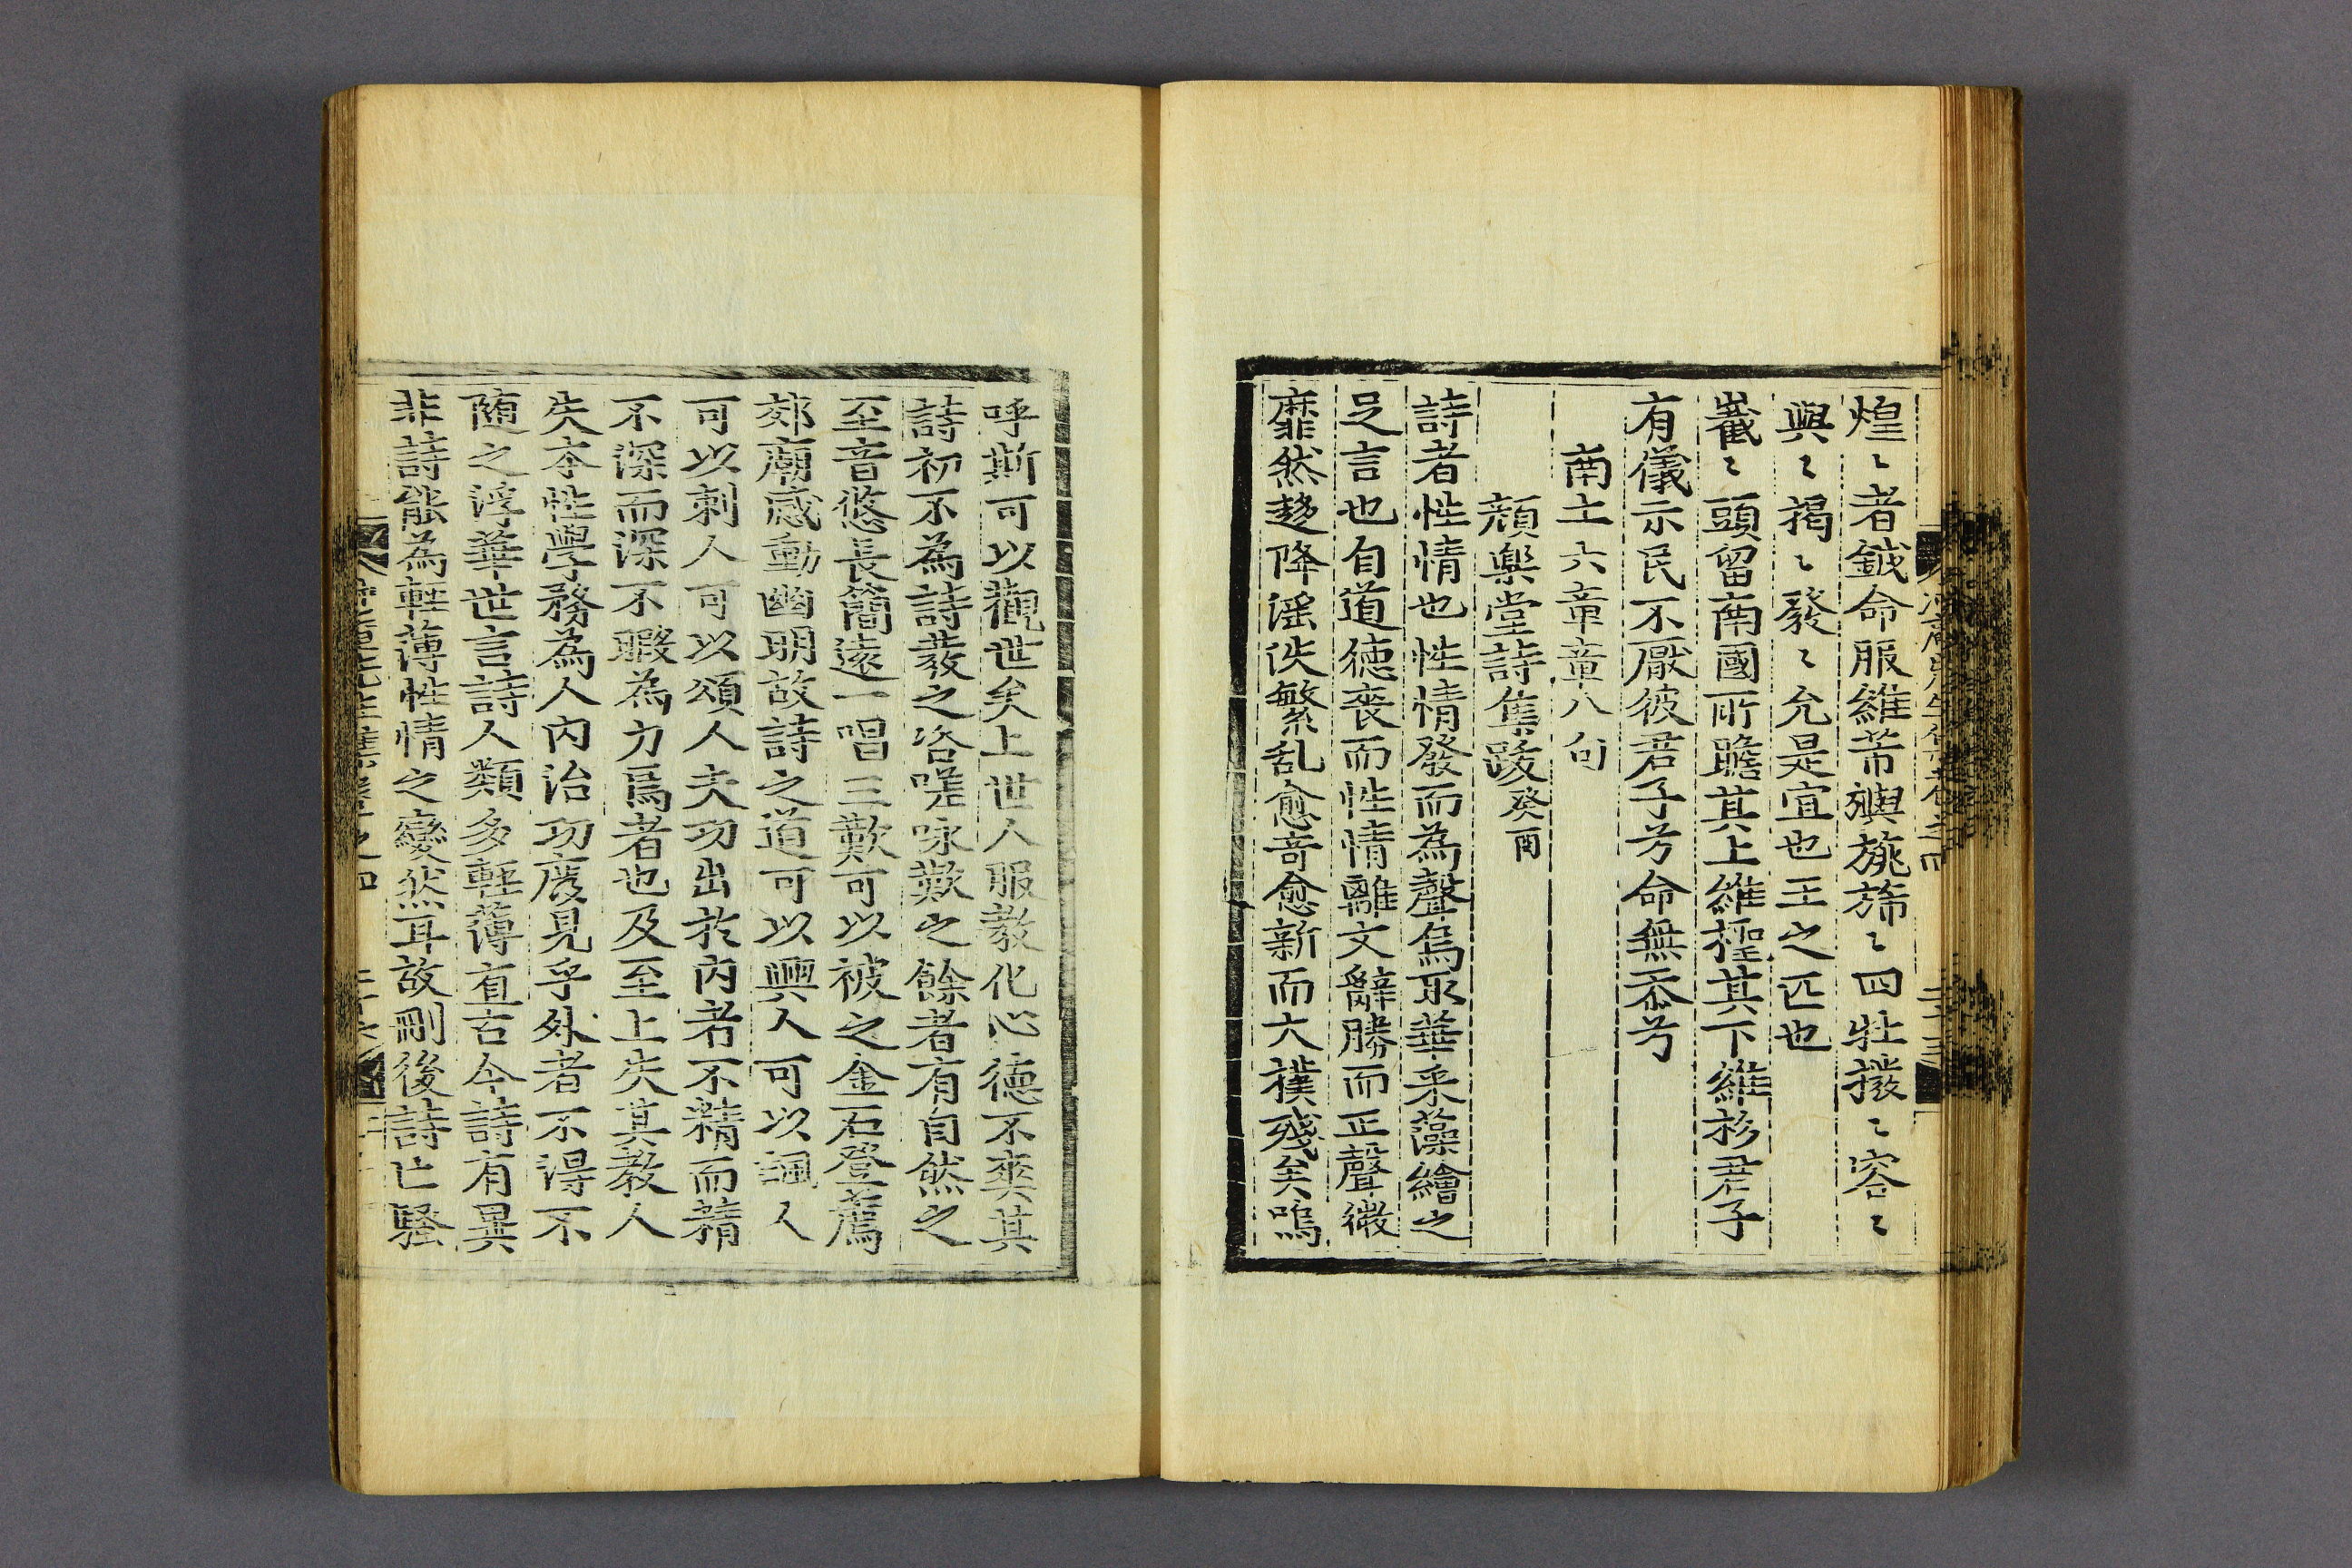 煌〻者鉞命服維芾旟旐旆〻四牡撥〻容〻
興〻揭〻發〻允是宜也王之匹也
巖〻頭留南國所瞻其上維極其下維衫君子
有儀示民不厭彼君子兮命無忝兮
南土六章章八句
頖樂堂詩集跋癸酉
詩者性情也性情發而為聲烏取華采藻繪之
足言也自道德喪而性情離文辭勝而正聲微
靡然趍降滛泆繁乱愈竒愈新而大樸殘矣嗚
呼斯可以觀世矣上世人服教化心德不爽其
詩初不為詩發之咨嗟咏歎之餘者有自然之
至音悠長簡遠一唱三歎可以被之金石登薦
郊廟感動幽明故詩之道可以興人可以諷人
可以刺人可以頌人夫功出於內者不精而精
不深而深不暇為力焉者也及至上失其教人
失本性學務為人內治功廢見乎外者不得不
随之浮華世言詩人類多輕薄直古今詩有異
非詩能為輕薄性情之變然耳故刪後詩亡騷